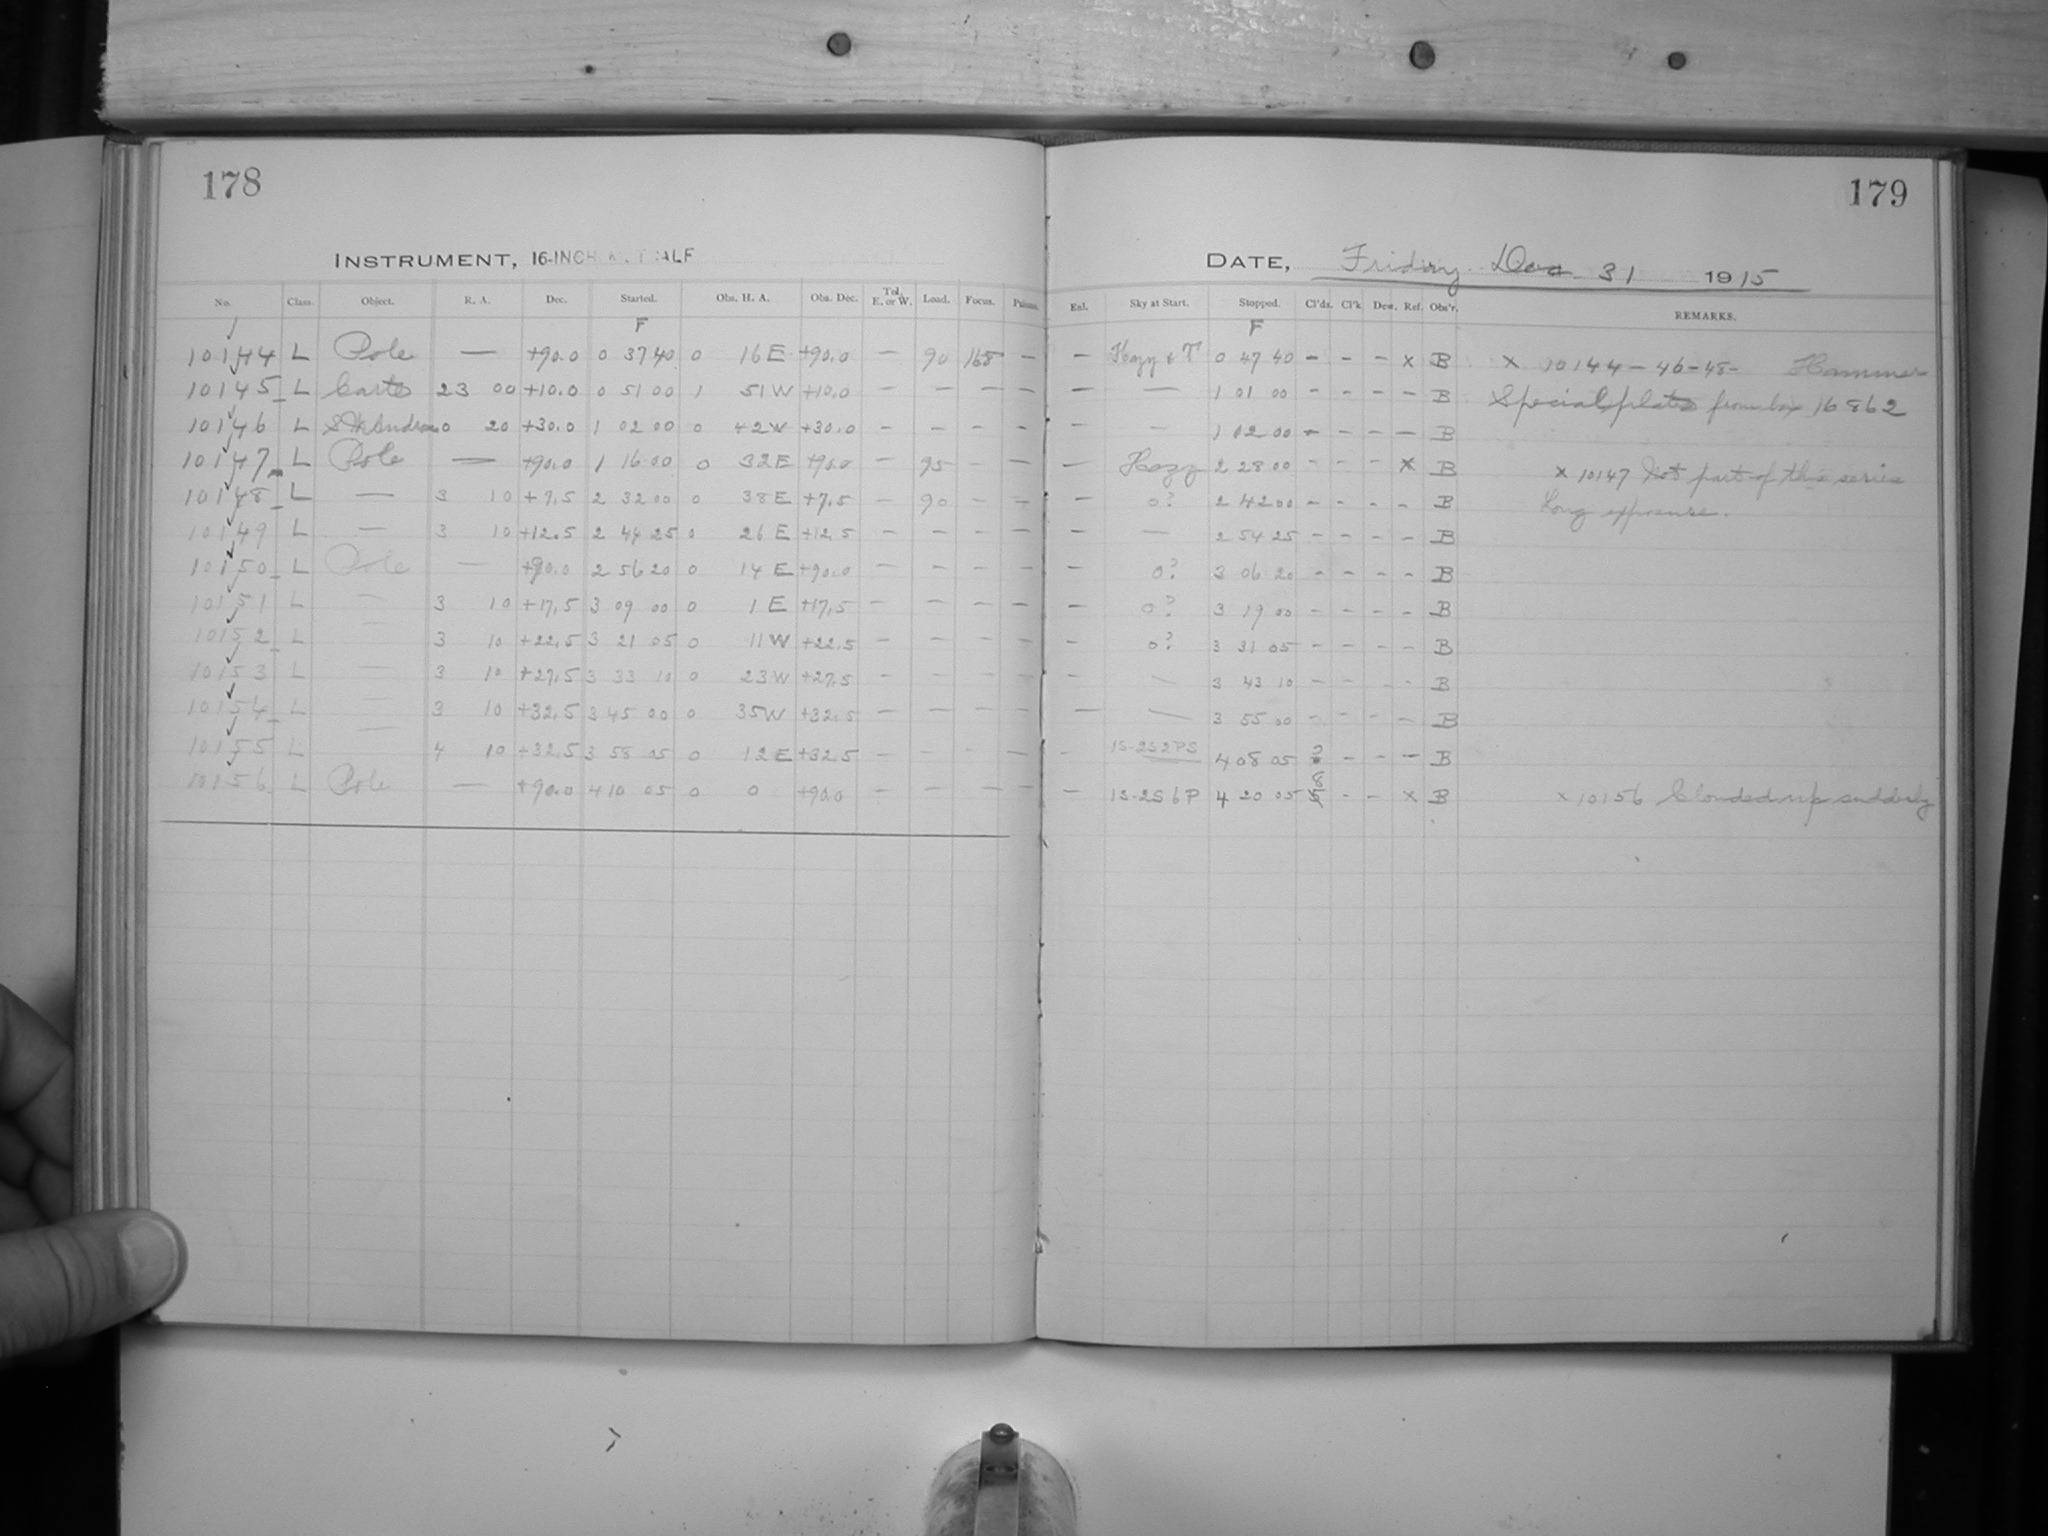 178
INSTRUMENT, 16-INCH METCALF
No. Class. Object. R. A. Dec. Started. Obs. H. A. Obs. Dec. Tel. E. or W. Load. Focus. Prisms.
F
10144 L Pole — +90.0 0 37 40 0 16 E +90.0 — 90 168 —
10145 L 23 00 +10.0 0 51 00 1 51 W +10.0 — — — —
10146 L 0 20 +30.0 1 02 00 0 42 W +30.0 — — — —
10147 L Pole — +90.0 1 16 00 0 32 E +90.0 — 95 — —
10148 L — 3 10 +7.5 2 32 00 0 38 E +7.5 — 90 — —
10149 L — 3 10 +12.5 2 44 25 0 26 E +12.5 — — — —
10150 L Pole — +90.0 2 56 20 0 14 E +90.0 — — — —
10151 L — 3 10 +17.5 3 09 00 0 1 E +17.5 — — — —
10152 L — 3 10 +22.5 3 21 05 0 11 W +22.5 — — — —
10153 L — 3 10 +27.5 3 33 10 0 23 W +27.5 — — — —
10154 L — 3 10 +32.5 3 45 00 0 35 W +32.5 — — — —
10155 L — 4 10 +32.5 3 58 05 0 12 E +32.5 — — — —
10156 L Pole — +90.0 4 10 05 0 0 +90.0 — — — —
179
DATE, Friday Dec 31 1915
Enl. Sky at Start. Stopped. Cl'ds. Cl'k Dew. Ref. Obs'r. REMARKS.
F
— Hazy & T 0 47 40 — — — x B x 10144-46-48- Hammer
— — 1 01 00 — — — — B Special plates from box 16862
— — 1 12 00 — — — — B
— Hazy 2 28 00 — — — x B x 10147 Not part of this series
— 0? 2 42 00 — — — — B Long exposure.
— — 2 54 25 — — — — B
— 0? 3 06 20 — — — — B
— 0? 3 19 00 — — — — B
— 0? 3 31 05 — — — — B
— — 3 43 10 — — — — B
— — 3 55 00 — — — — B
— 1S-2S2PS 4 08 05 ? — — — B
— 1S-2S6P 4 20 05 8 — — x B x 10156 Clouded up suddenly